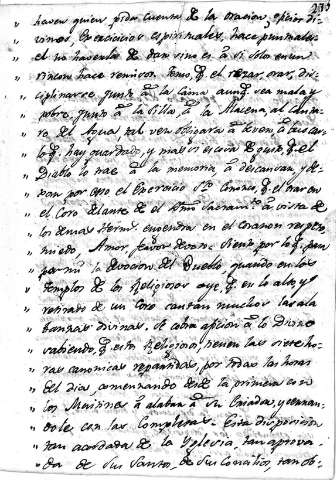 haver quien pida cuenta de la oracion, oficio di-
vino, Exercicios espirituales, hace puntuales
el no haverla de dar sino es à si solo en un
rincon hace remisos. Temo, q. el rezar, orar, dis-
ciplinarse junto à la cama aunq. sea mala y
pobre. Junto à la silla, à la
ro del Agua tal vez obligara à beber, à buscar
lo q. hay guardado, y mas si es cosa de gusto, q. el
Diablo lo trae à la memoria à descansar, y de-
xar por esso el Exercicio Sto. Comun, q. el orar en
el Coro delante de el SSmo Sacramto. à vista de
los demas Herms. engendra en el Corazon respeto
miedo Amor favor Siento, por lo q.
la devocion del Pueblo quando en los
templos de los Religiosos oye, q. en lo alto, y
retirado de un Coro cantan muchos las ala-
banzas divinas. Se cobra aficion à lo Divino
sabiendo, q. estos Religiosos tienen las siete ho-
ras canonicas repartidas, por todas las horas
del dia, comenzando desde la primera es en
los Maitines à alabar à su Criador, y
dole con las Completas. Esta disposicion
tan acordada de la Yglesia, tan aprova-
da de sus Santos, de sus Concilios, tan ob-